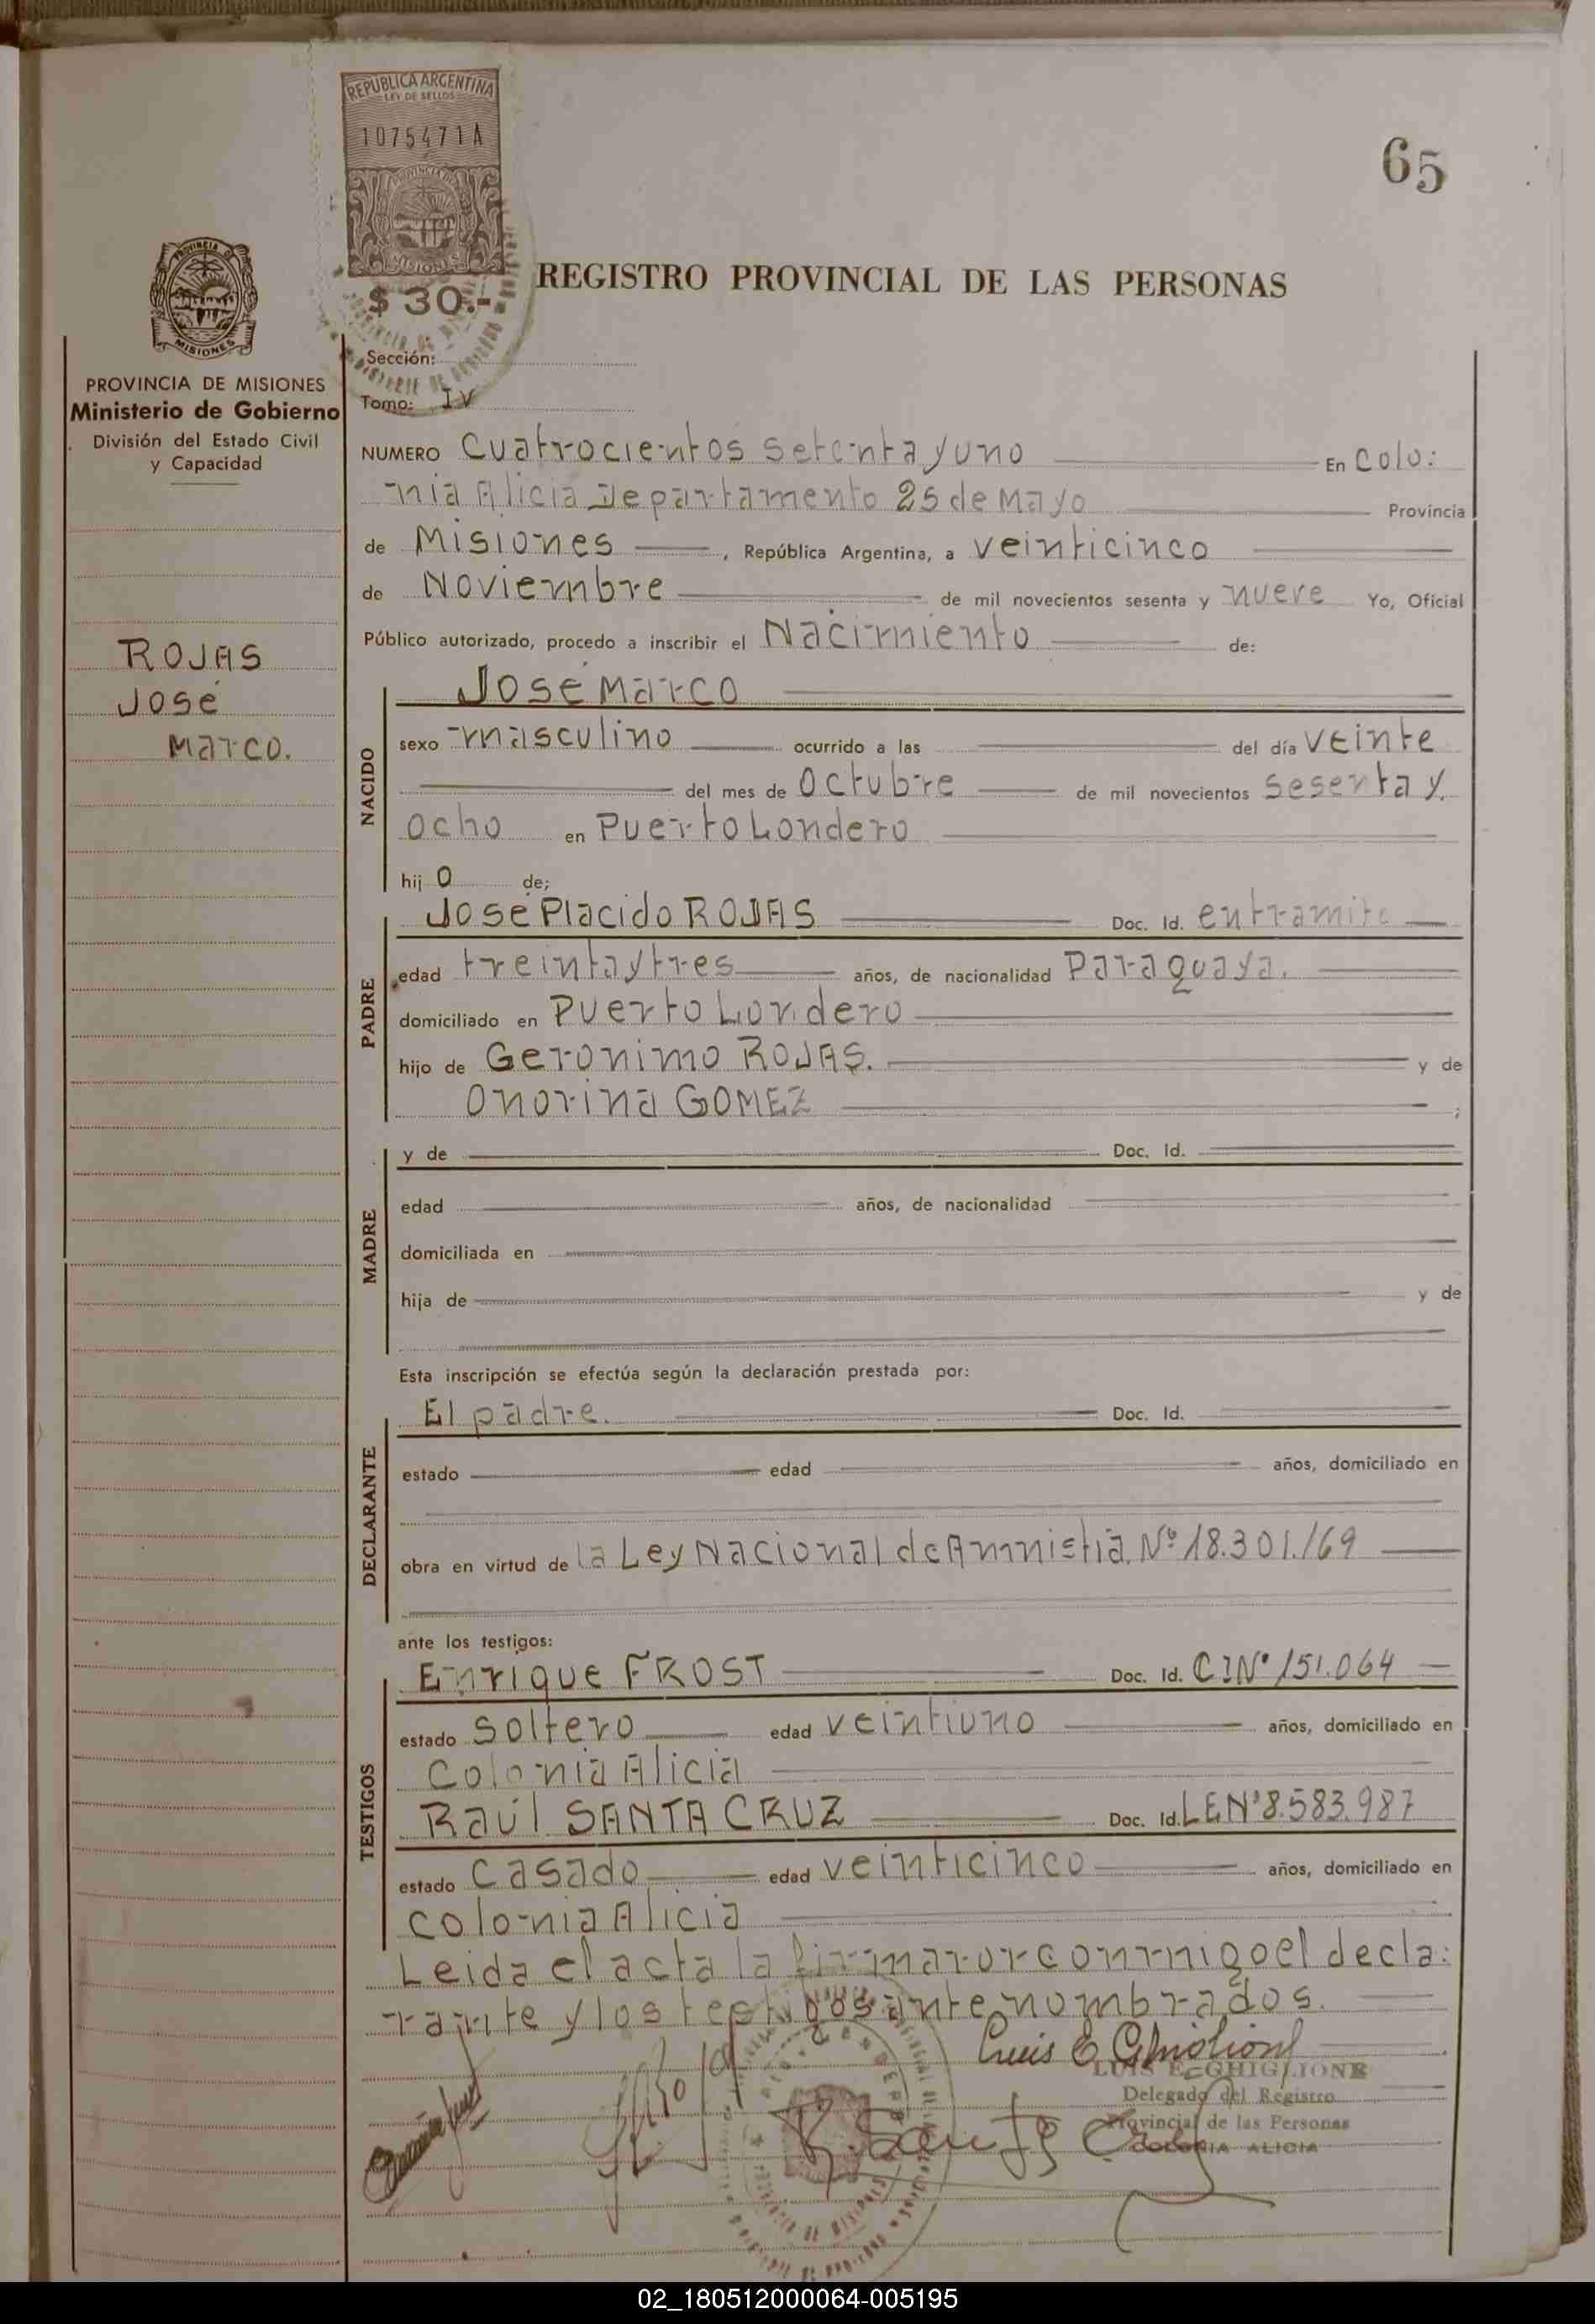 REPUBLICA ARGENTINA
LEY DE SELLOS
1075471A
PROVINCIA DE
MISIONES
$ 30.-
65
PROVINCIA DE
MISIONES
REGISTRO PROVINCIAL DE LAS PERSONAS
PROVINCIA DE MISIONES
Ministerio de Gobierno
División del Estado Civil
y Capacidad
ROJAS
José
Marco.
Sección:
Tomo: IV
NUMERO Cuatrocientos setenta y uno En Colo:
nia Alicia Departamento 25 de Mayo Provincia
de Misiones, República Argentina, a veinticinco
de Noviembre de mil novecientos sesenta y nueve Yo, Oficial
Público autorizado, procedo a inscribir el Nacimiento de:
NACIDO
José Marco
sexo masculino ocurrido a las del día veinte
del mes de Octubre de mil novecientos sesenta y
ocho en Puerto Londero
hij o de;
PADRE
José Placido ROJAS Doc. Id. en tramite
edad treinta y tres años, de nacionalidad Paraguaya.
domiciliado en Puerto Londero
hijo de Geronimo ROJAS. y de
Onorina GOMEZ ;
MADRE
y de Doc. Id.
edad años, de nacionalidad
domiciliada en
hija de y de
Esta inscripción se efectúa según la declaración prestada por:
DECLARANTE
El padre. Doc. Id.
estado edad años, domiciliado en
obra en virtud de la Ley Nacional de Amnistia. Nº 18.301./69
ante los testigos:
TESTIGOS
Enrique FROST Doc. Id. CINº 151.064
estado soltero edad veintiuno años, domiciliado en
Colonia Alicia
Raúl SANTA CRUZ Doc. Id. LENº 8.583.987
estado casado edad veinticinco años, domiciliado en
Colonia Alicia
Leida el acta la firmaron conmigo el decla:
rante y los testigos ante nombrados.
Luis E Ghiglione
LUIS E. GHIGLIONE
Delegado del Registro
Provincial de las Personas
COLONIA ALICIA
R. Santa Cruz
02_180512000064-005195